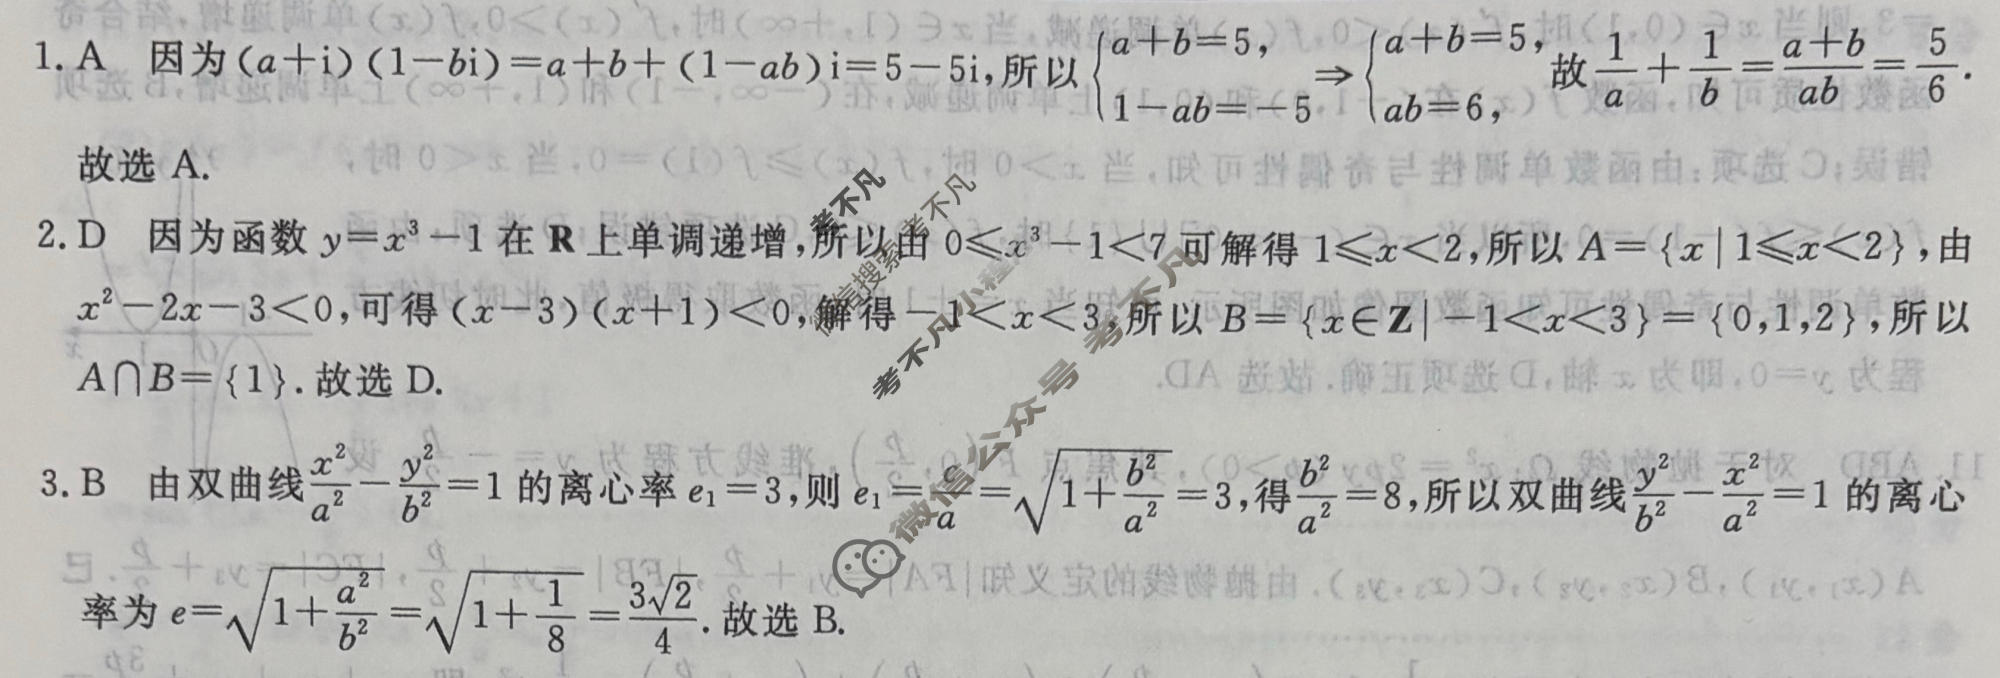 1. A 因为(a+i)(1-bi)=a+b+(1-ab)i=5-5i,所以{a+b=5, 1-ab=-5⇒{a+b=5, ab=6, 故1/a+1/b=(a+b)/ab=5/6.
故选 A.
2. D 因为函数 y=x³-1 在 R 上单调递增,所以由 0≤x³-1<7 可解得 1≤x<2,所以 A={x|1≤x<2},由
x²-2x-3<0,可得(x-3)(x+1)<0,解得-1<x<3,所以 B={x∈Z|-1<x<3}={0,1,2},所以
A∩B={1}.故选 D.
3. B 由双曲线x²/a²-y²/b²=1 的离心率 e₁=3,则 e₁=c/a=√(1+b²/a²)=3,得b²/a²=8,所以双曲线y²/b²-x²/a²=1 的离心
率为 e=√(1+a²/b²)=√(1+1/8)=3√2/4.故选 B.
考不凡
微信搜索 考不凡
考不凡小程序
微信公众号 考不凡